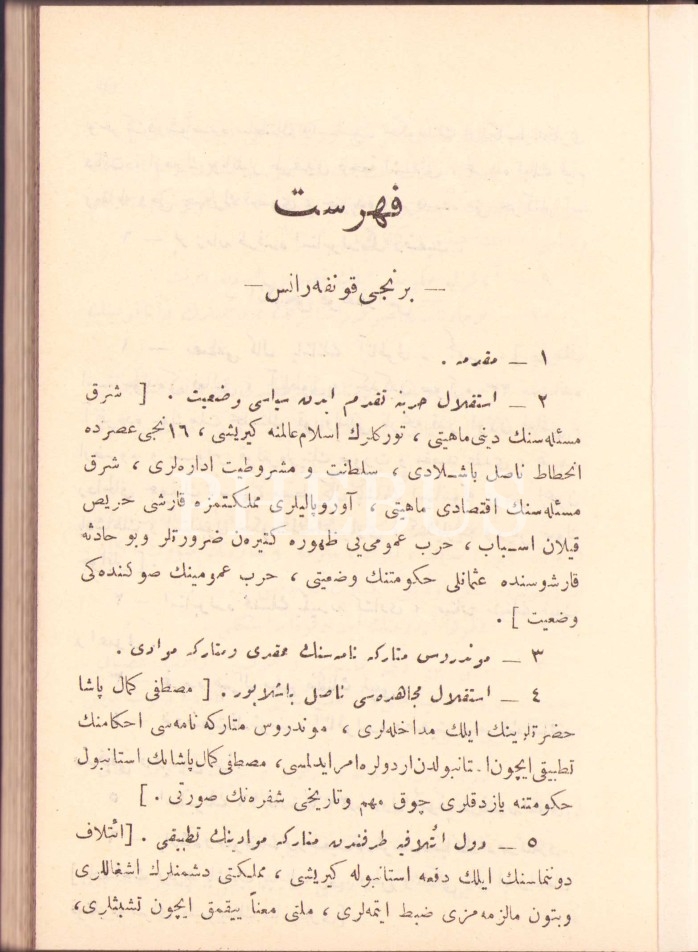 فهرست
— برنجی قونفه‌رانس —
١ — مقدمه .
٢ — استقلال حربنه تقدم ایدن سیاسی وضعیت . [ شرق
مسئله‌سنك دینی ماهیتی ، تورکلرك اسلام عالمنه کیریشی ، ١٦نجی عصرده
انحطاط ناصل باشلادی ، سلطنت و مشروطیت اداره‌لری ، شرق
مسئله‌سنك اقتصادی ماهیتی ، آوروپالیلری مملکتمزه قارشی حریص
قیلان اسباب ، حرب عمومی‌یی ظهوره کتیره‌ن ضرورتلر وبو حادثه
قارشوسنده عثمانلی حکومتنك وضعیتی ، حرب عمومینك صوکنده‌کی
وضعیت ] .
٣ — موندروس متارکه نامه‌سنك عقدی ومتارکه موادی .
٤ — استقلال مجاهده‌سی ناصل باشلایور . [ مصطفی کمال پاشا
حضرتلرینك ایلك مداخله‌لری ، موندروس متارکه نامه‌سی احکامنك
تطبیقی ایچون استانبولدن اردولره امر ایدلمسی، مصطفی کمال پاشانك استانبول
حکومتنه یازدقلری چوق مهم وتاریخی شفره‌نك صورتی . ]
٥ — دول ائتلافیه طرفندن متارکه موادینك تطبیقی . [ائتلاف
دونماسنك ایلك دفعه استانبوله کیریشی ، مملکتی دشمنلرك اشغاللری
وبتون مالزمه‌مزی ضبط ایتمه‌لری ، ملتی معناً ییقمق ایچون تشبثلری،